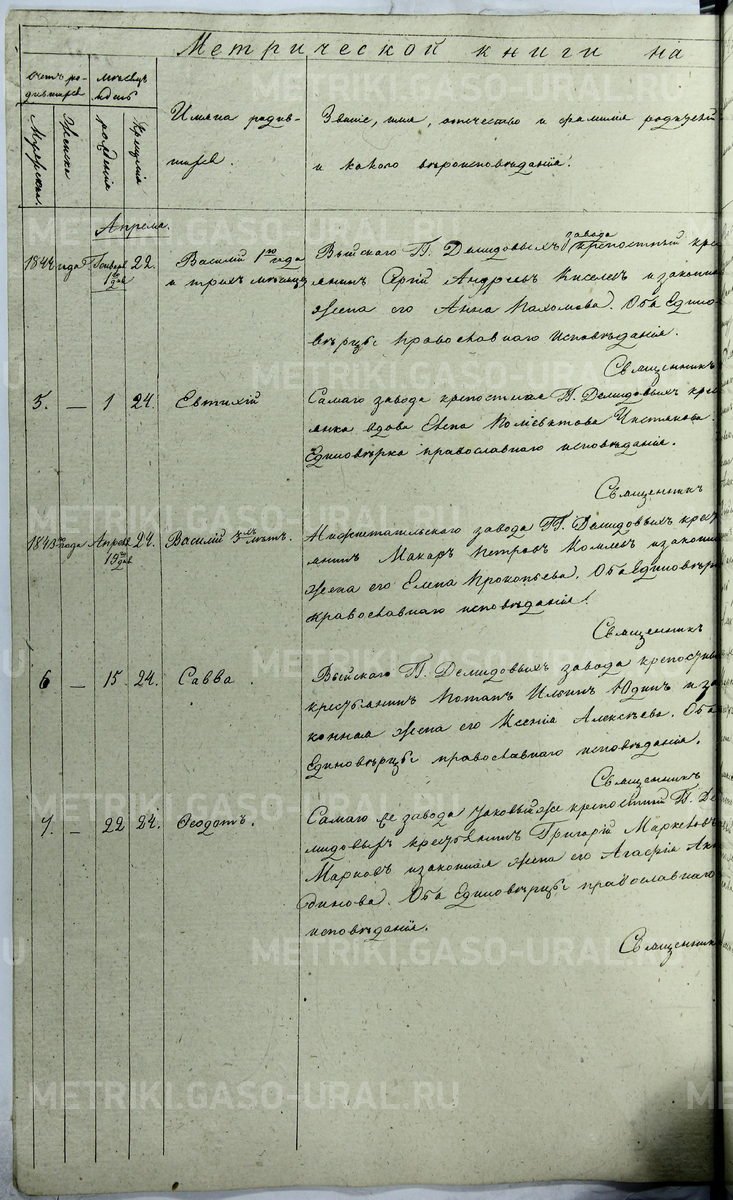 Метрической книги на
счетъ ро-
дившихся
мѣсяцъ
и день
Имяна родив-
шихся.
Званіе, имя, отчество и фамилія родителей
и какого вѣроисповѣданія.
Мужеска.
Женска
рожденія
Крещенія
Апреля.
1844 года Генваря 1го дня 22. Василій 1го года
и трехъ мѣсяцев
Выйского Гг. Демидовыхъ завода крепостный кре
янинъ Сергій Андреевъ Киселевъ и законна
жена его Анна Пахомова. Оба Едино
вѣрцы православнаго исповѣданія.
Священникъ
5. — 1 24. Евтихій
Самаго завода крепостная Гг. Демидовыхъ крес
янка вдова Елена Чистякова.
Единовѣрка православнаго исповѣданія.
Священник
1843го года Апреля 24. Василій 3хъ лѣтъ.
Нижнетагильского завода Гг. Демидовыхъ крест
янинъ Макаръ Петровъ и законна
жена его Елена Прокопьева. Оба Единовѣрц
православнаго исповѣданія.
Священник
6 — 15 24. Савва.
Выйского Гг. Демидовыхъ завода крепостны
крестьянинъ Потапъ Ильинъ Юдинъ и за
конная жена его Ксенія Алексѣева. Оба
Единовѣрцы православнаго исповѣданія.
Священникъ
7. — 22 24. Ѳеодотъ.
Самаго же завода таковый же крепостный Гг. Де
мидовыхъ крестьянинъ Григорій Маркеловъ
Марковъ и законная жена его Агафія
динова. Оба Единовѣрцы православнаго
исповѣданія.
Священник
METRIKI.GASO-URAL.RU